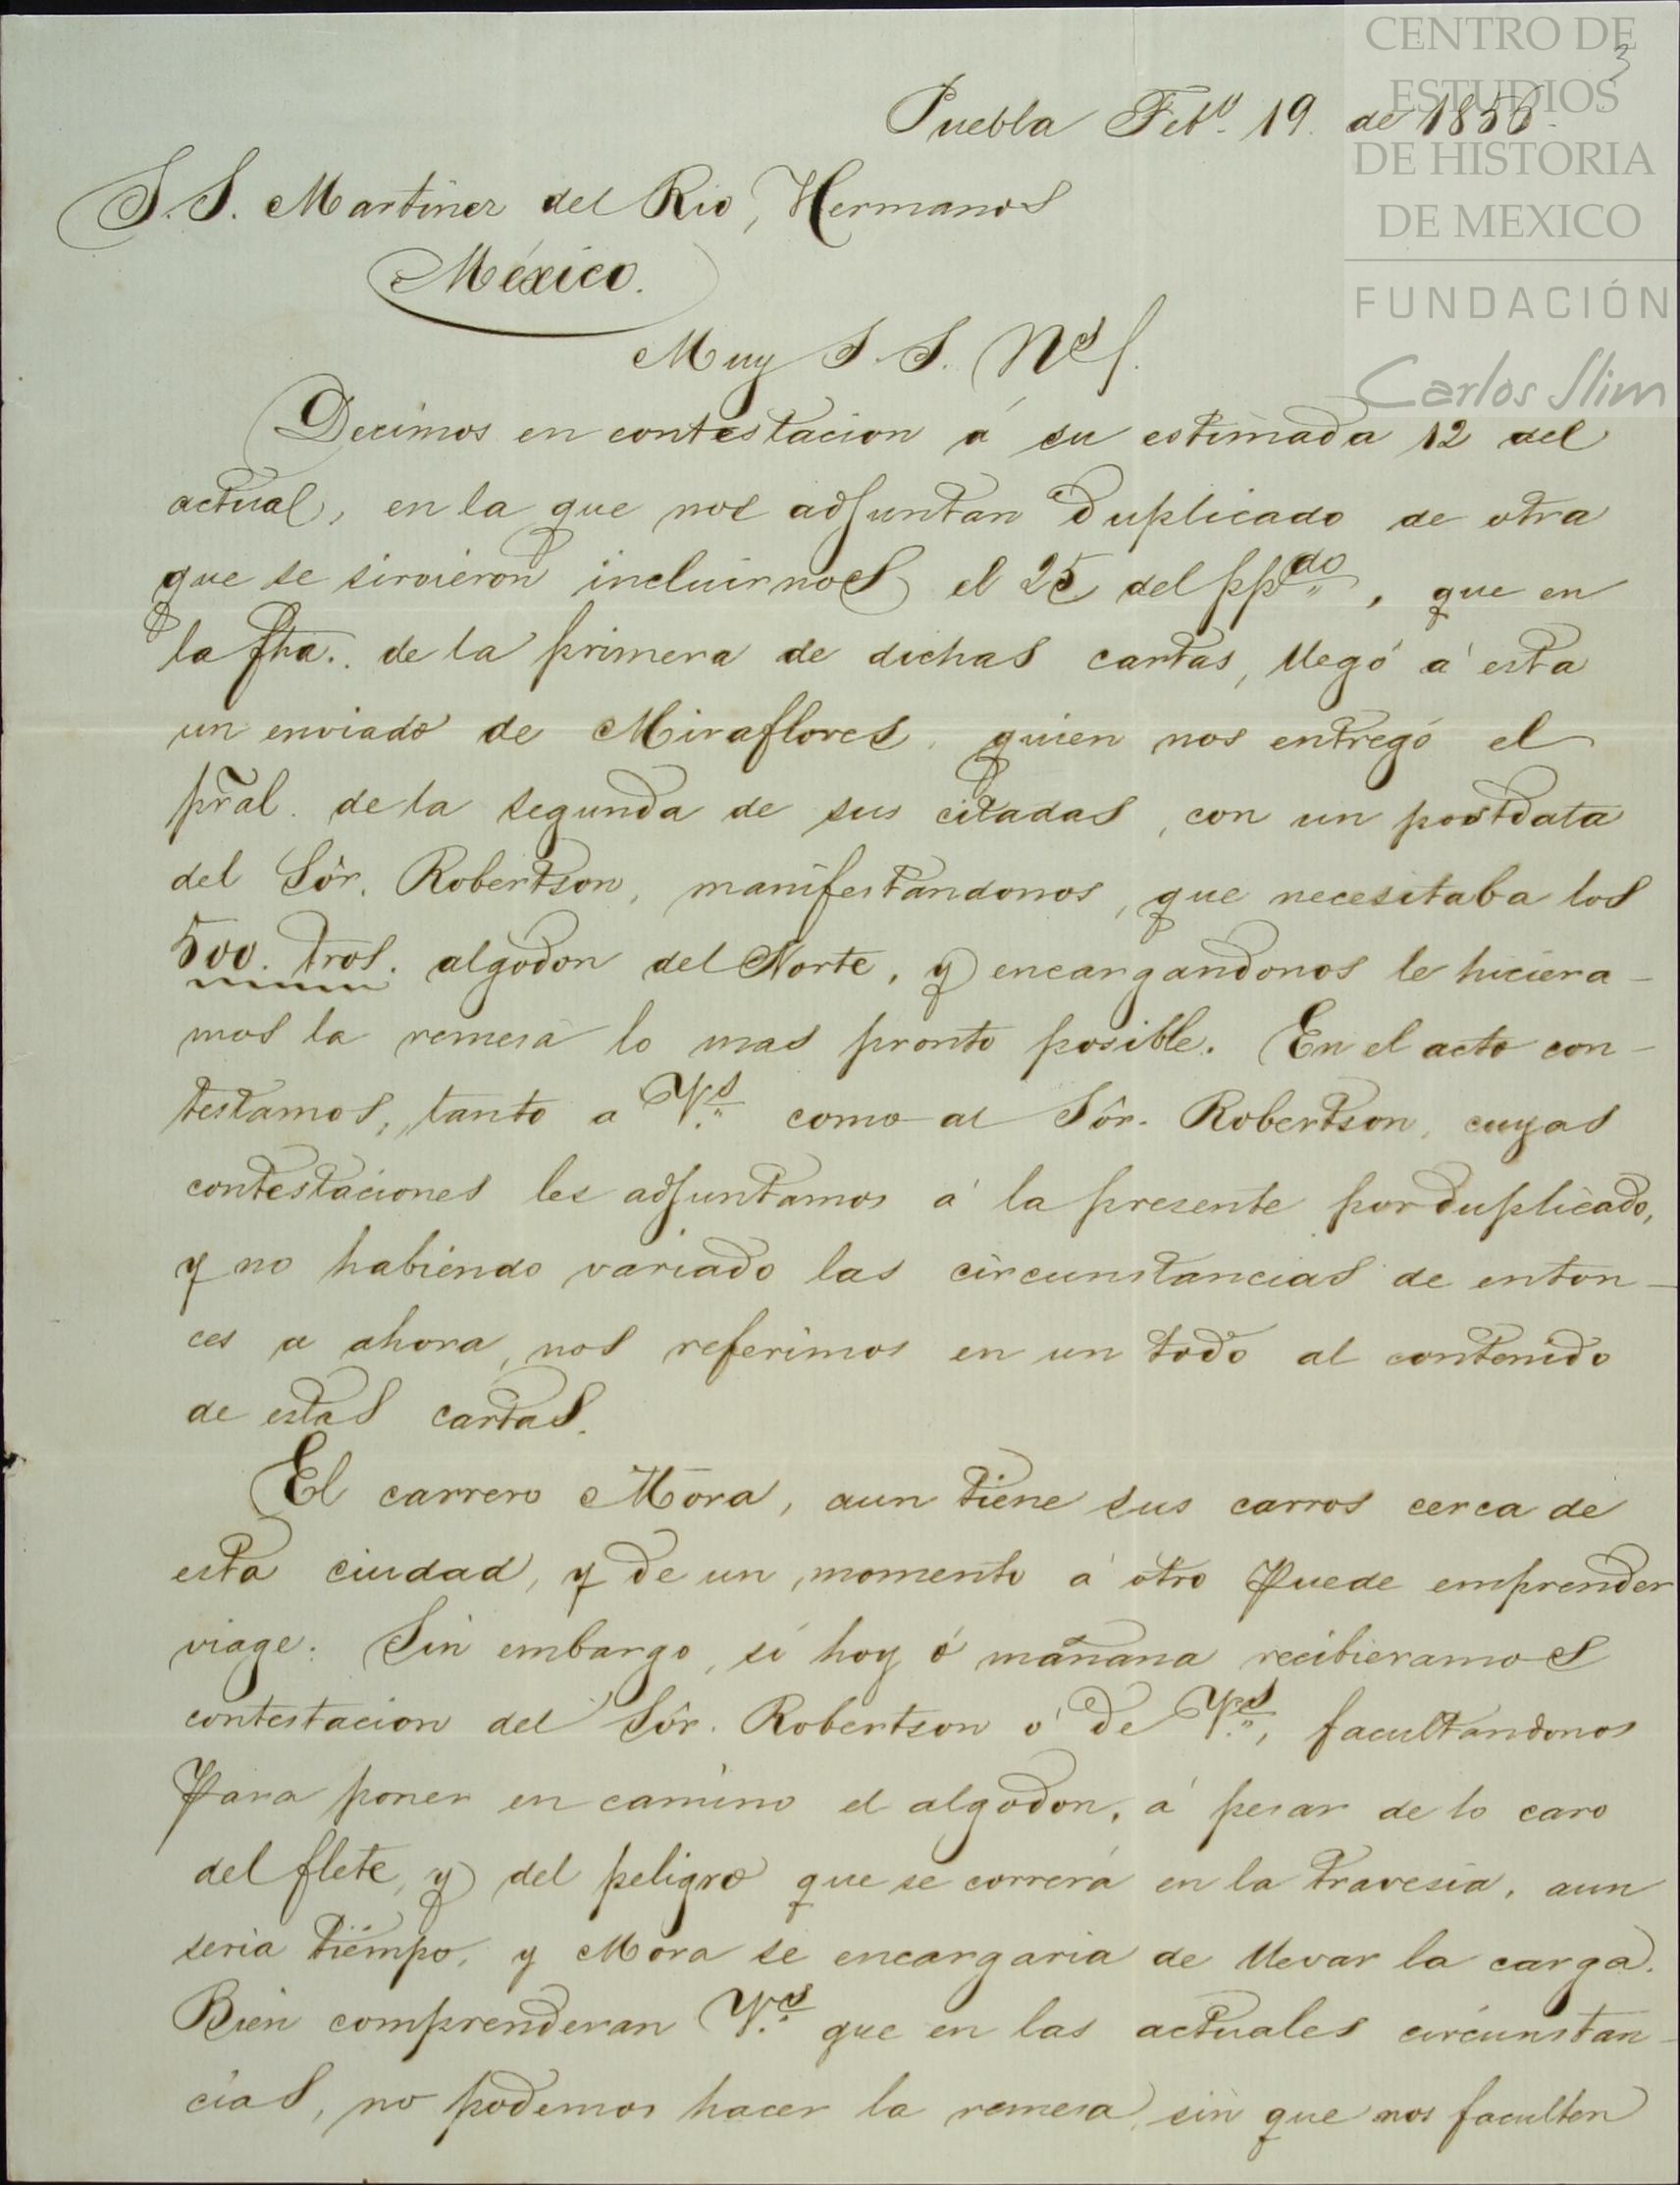 CENTRO DE
ESTUDIOS
DE HISTORIA
DE MEXICO
FUNDACIÓN
Carlos Slim
3
Puebla Febº. 19. de 1856.
S.S. Martinez del Rio, Hermanos
México.
Muy S.S. Ns.
Decimos en contestacion á su estimada 12 del
actual, en la que nos adjuntan duplicado de otra
que se sirvieron incluirnos el 25 del ppdo, que en
la fha. de la primera de dichas cartas, llegó á esta
un enviado de Miraflores, quien nos entregó el
pral. de la segunda de sus citadas, con un postdata
del Sôr. Robertson, manifestandonos, que necesitaba los
500. tros. algodon del Norte, y encargandonos le hiciera-
mos la remesa lo mas pronto posible. En el acto con-
testamos, tanto a Vs. como al Sôr. Robertson, cuyas
contestaciones les adjuntamos á la presente por duplicado,
y no habiendo variado las circunstancias de enton-
ces a ahora, nos referimos en un todo al contenido
de estas cartas.
El carrero Mora, aun tiene sus carros cerca de
esta ciudad, y de un momento á otro puede emprender
viage: Sin embargo, si hoy ó mañana recibieramos
contestacion del Sôr. Robertson ó de Vs., facultandonos
para poner en camino el algodon, á pesar de lo caro
del flete, y del peligro que se correrá en la travesia, aun
seria tiempo, y Mora se encargaria de llevar la carga.
Bien comprenderan Vs. que en las actuales circunstan-
cias, no podemos hacer la remesa, sin que nos faculten